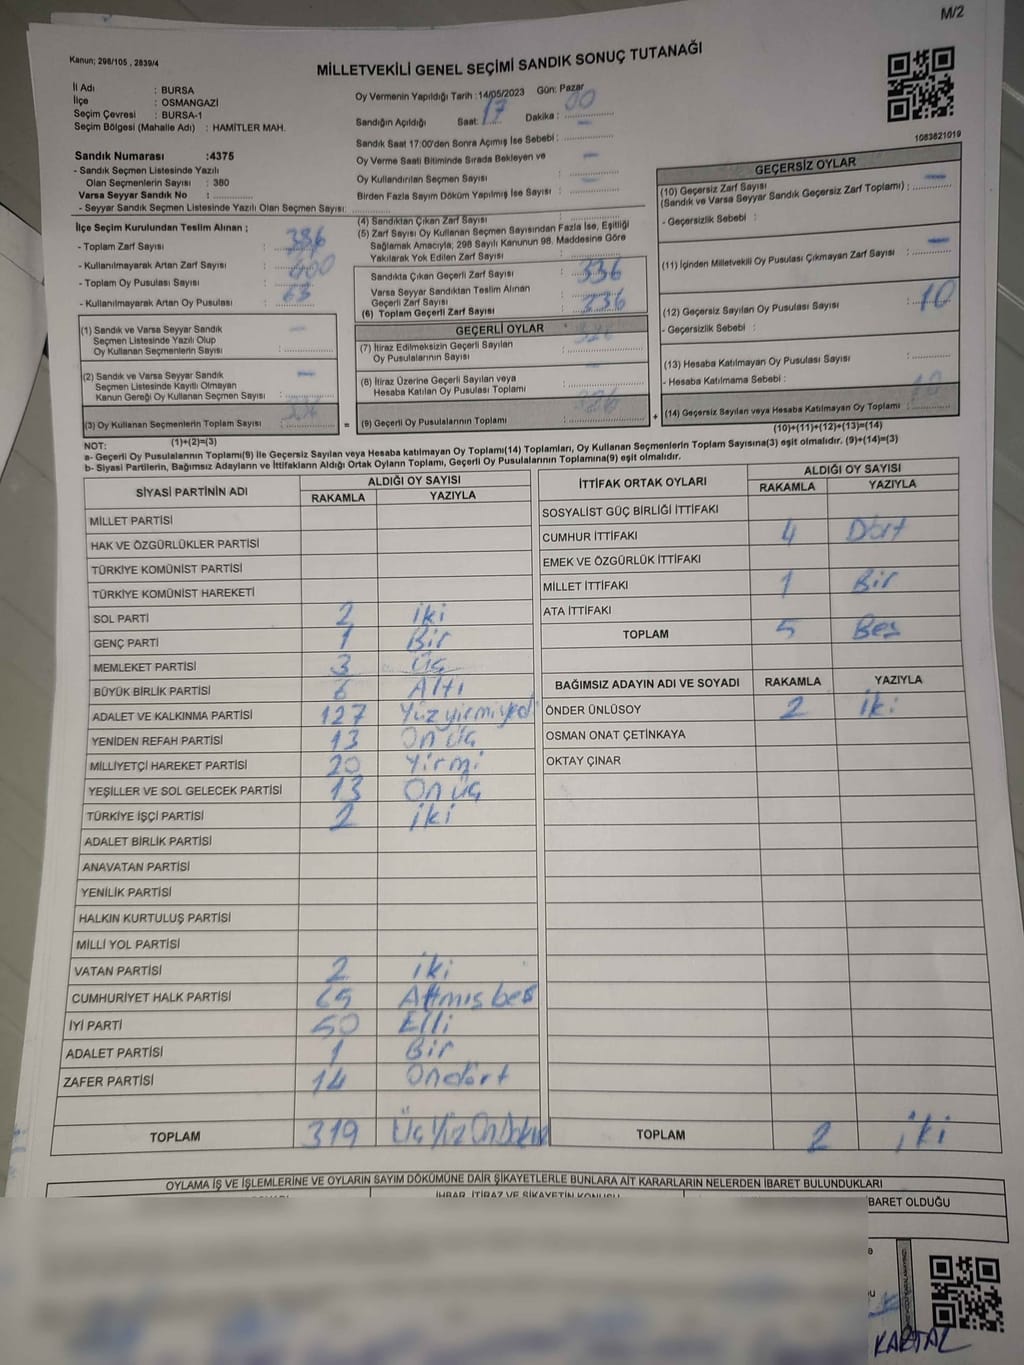 M/2
Kanun; 298/105 , 2839/4
MİLLETVEKİLİ GENEL SEÇİMİ SANDIK SONUÇ TUTANAĞI
İl Adı : BURSA
İlçe : OSMANGAZİ
Seçim Çevresi : BURSA-1
Seçim Bölgesi (Mahalle Adı) : HAMİTLER MAH.
Sandık Numarası :4375
- Sandık Seçmen Listesinde Yazılı
Olan Seçmenlerin Sayısı : 380
Varsa Seyyar Sandık No :
- Seyyar Sandık Seçmen Listesinde Yazılı Olan Seçmen Sayısı:
Oy Vermenin Yapıldığı Tarih :14/05/2023 Gün: Pazar
Sandığın Açıldığı Saat: 17 Dakika : 00
Sandık Saat 17:00'den Sonra Açımış İse Sebebi :
Oy Verme Saati Bitiminde Sırada Bekleyen ve
Oy Kullandırılan Seçmen Sayısı
Birden Fazla Sayım Döküm Yapılmış İse Sayısı :
1083821019
İlçe Seçim Kurulundan Teslim Alınan ;
- Toplam Zarf Sayısı :
- Kullanılmayarak Artan Zarf Sayısı :
- Toplam Oy Pusulası Sayısı : 400
- Kullanılmayarak Artan Oy Pusulası : 63
(1) Sandık ve Varsa Seyyar Sandık
Seçmen Listesinde Yazılı Olup
Oy Kullanan Seçmenlerin Sayısı : –
(2) Sandık ve Varsa Seyyar Sandık
Seçmen Listesinde Kayıtlı Olmayan
Kanun Gereği Oy Kullanan Seçmen Sayısı : –
(3) Oy Kullanan Seçmenlerin Toplam Sayısı :
(1)+(2)=(3)
(4) Sandıktan Çıkan Zarf Sayısı :
(5) Zarf Sayısı Oy Kullanan Seçmen Sayısından Fazla İse, Eşitliği
Sağlamak Amacıyla, 298 Sayılı Kanunun 98. Maddesine Göre
Yakılarak Yok Edilen Zarf Sayısı :
Sandıkta Çıkan Geçerli Zarf Sayısı : 336
Varsa Seyyar Sandıktan Teslim Alınan
Geçerli Zarf Sayısı :
(6) Toplam Geçerli Zarf Sayısı : 336
GEÇERLİ OYLAR
(7) İtiraz Edilmeksizin Geçerli Sayılan
Oy Pusulalarının Sayısı : 326
(8) İtiraz Üzerine Geçerli Sayılan veya
Hesaba Katılan Oy Pusulası Toplamı :
= (9) Geçerli Oy Pusulalarının Toplamı : 326
GEÇERSİZ OYLAR
(10) Geçersiz Zarf Sayısı
(Sandık ve Varsa Seyyar Sandık Geçersiz Zarf Toplamı) : –
- Geçersizlik Sebebi :
(11) İçinden Milletvekili Oy Pusulası Çıkmayan Zarf Sayısı : –
(12) Geçersiz Sayılan Oy Pusulası Sayısı : 10
- Geçersizlik Sebebi :
(13) Hesaba Katılmayan Oy Pusulası Sayısı :
- Hesaba Katılmama Sebebi :
+ (14) Geçersiz Sayılan veya Hesaba Katılmayan Oy Toplamı : 10
(10)+(11)+(12)+(13)=(14)
NOT:
a- Geçerli Oy Pusulalarının Toplamı(9) ile Geçersiz Sayılan veya Hesaba katılmayan Oy Toplamı(14) Toplamları, Oy Kullanan Seçmenlerin Toplam Sayısına(3) eşit olmalıdır. (9)+(14)=(3)
b- Siyasi Partilerin, Bağımsız Adayların ve İttifakların Aldığı Ortak Oyların Toplamı, Geçerli Oy Pusulalarının Toplamına(9) eşit olmalıdır.
SİYASİ PARTİNİN ADI ALDIĞI OY SAYISI
RAKAMLA YAZIYLA
MİLLET PARTİSİ
HAK VE ÖZGÜRLÜKLER PARTİSİ
TÜRKİYE KOMÜNİST PARTİSİ
TÜRKİYE KOMÜNİST HAREKETİ
SOL PARTİ 2 iki
GENÇ PARTİ 1 Bir
MEMLEKET PARTİSİ 3 Üç
BÜYÜK BİRLİK PARTİSİ 6 Altı
ADALET VE KALKINMA PARTİSİ 127 Yüzyirmiyedi
YENİDEN REFAH PARTİSİ 13 On üç
MİLLİYETÇİ HAREKET PARTİSİ 20 Yirmi
YEŞİLLER VE SOL GELECEK PARTİSİ 13 On üç
TÜRKİYE İŞÇİ PARTİSİ 2 iki
ADALET BİRLİK PARTİSİ
ANAVATAN PARTİSİ
YENİLİK PARTİSİ
HALKIN KURTULUŞ PARTİSİ
MİLLİ YOL PARTİSİ
VATAN PARTİSİ 2 iki
CUMHURİYET HALK PARTİSİ 65 Altmış beş
İYİ PARTİ 50 Elli
ADALET PARTİSİ 1 Bir
ZAFER PARTİSİ 14 Ondört
TOPLAM 319 Üç Yüz On Dokuz
İTTİFAK ORTAK OYLARI ALDIĞI OY SAYISI
RAKAMLA YAZIYLA
SOSYALİST GÜÇ BİRLİĞİ İTTİFAKI
CUMHUR İTTİFAKI 4 Dört
EMEK VE ÖZGÜRLÜK İTTİFAKI
MİLLET İTTİFAKI 1 Bir
ATA İTTİFAKI
TOPLAM 5 Beş
BAĞIMSIZ ADAYIN ADI VE SOYADI RAKAMLA YAZIYLA
ÖNDER ÜNLÜSOY 2 iki
OSMAN ONAT ÇETİNKAYA
OKTAY ÇINAR
TOPLAM 2 iki
OYLAMA İŞ VE İŞLEMLERİNE VE OYLARIN SAYIM DÖKÜMÜNE DAİR ŞİKAYETLERLE BUNLARA AİT KARARLARIN NELERDEN İBARET BULUNDUKLARI
İHBAR, İTİRAZ VE ŞİKAYETİN KONUSU
BARET OLDUĞU
KARTAL